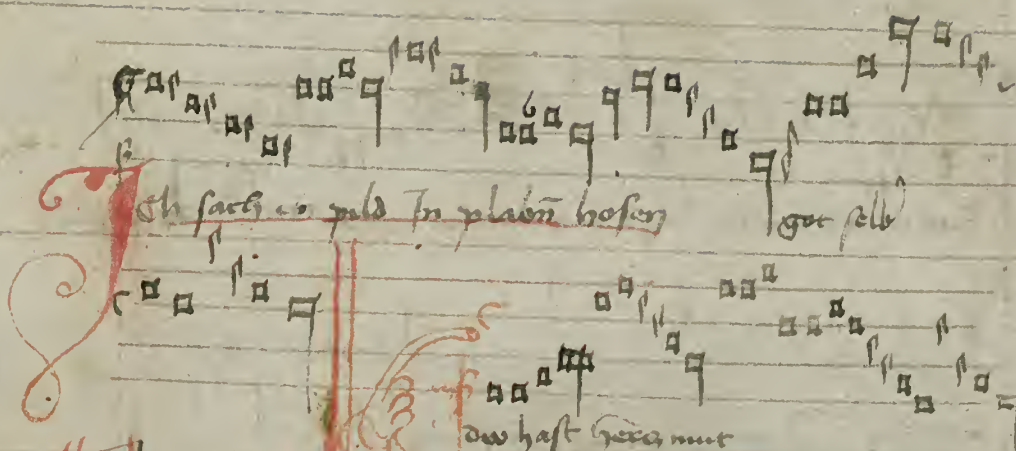 Ich sach ein pild In plabn̄ hosen got selb
dw hast herczn mut